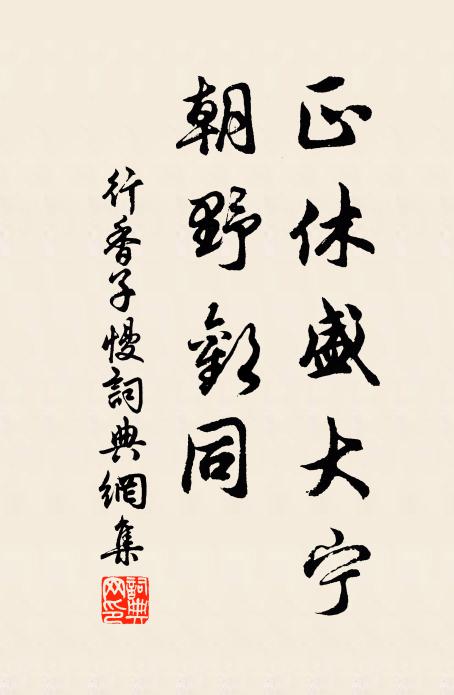 正休盛大宁
朝野歡同
行香子慢詞典網集
詞典网印